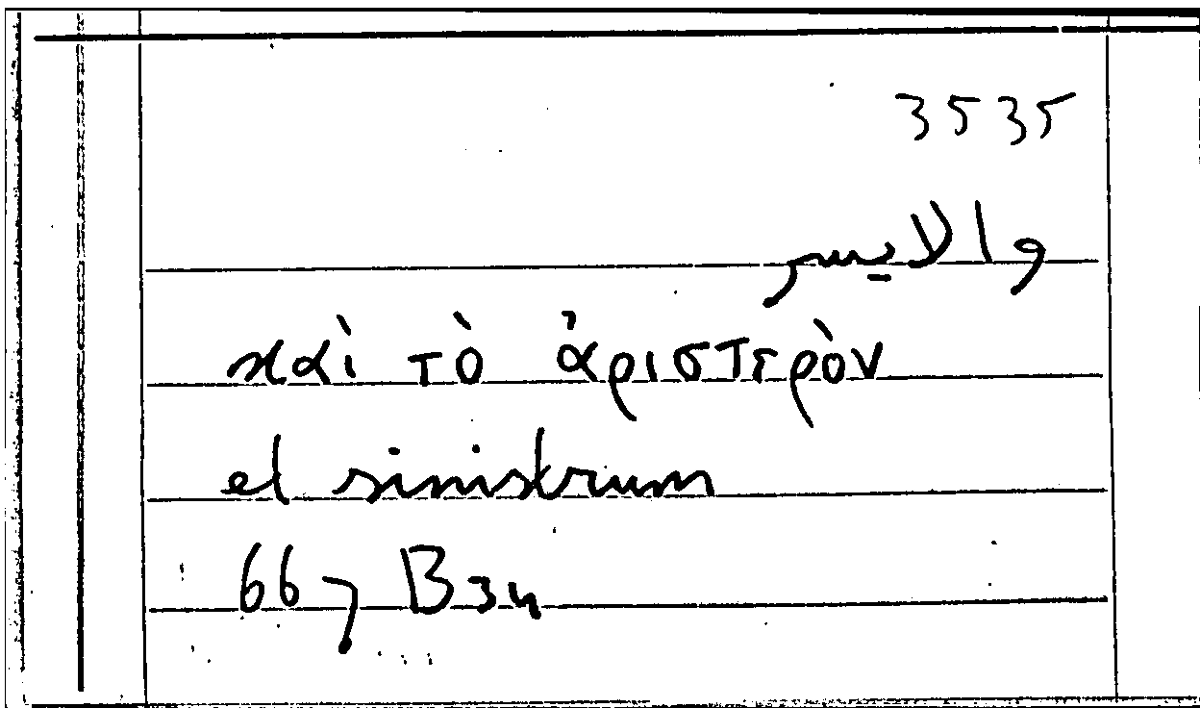 3535
والايسر
καὶ τὸ ἀριστερὸν
et sinistrum
667 B34